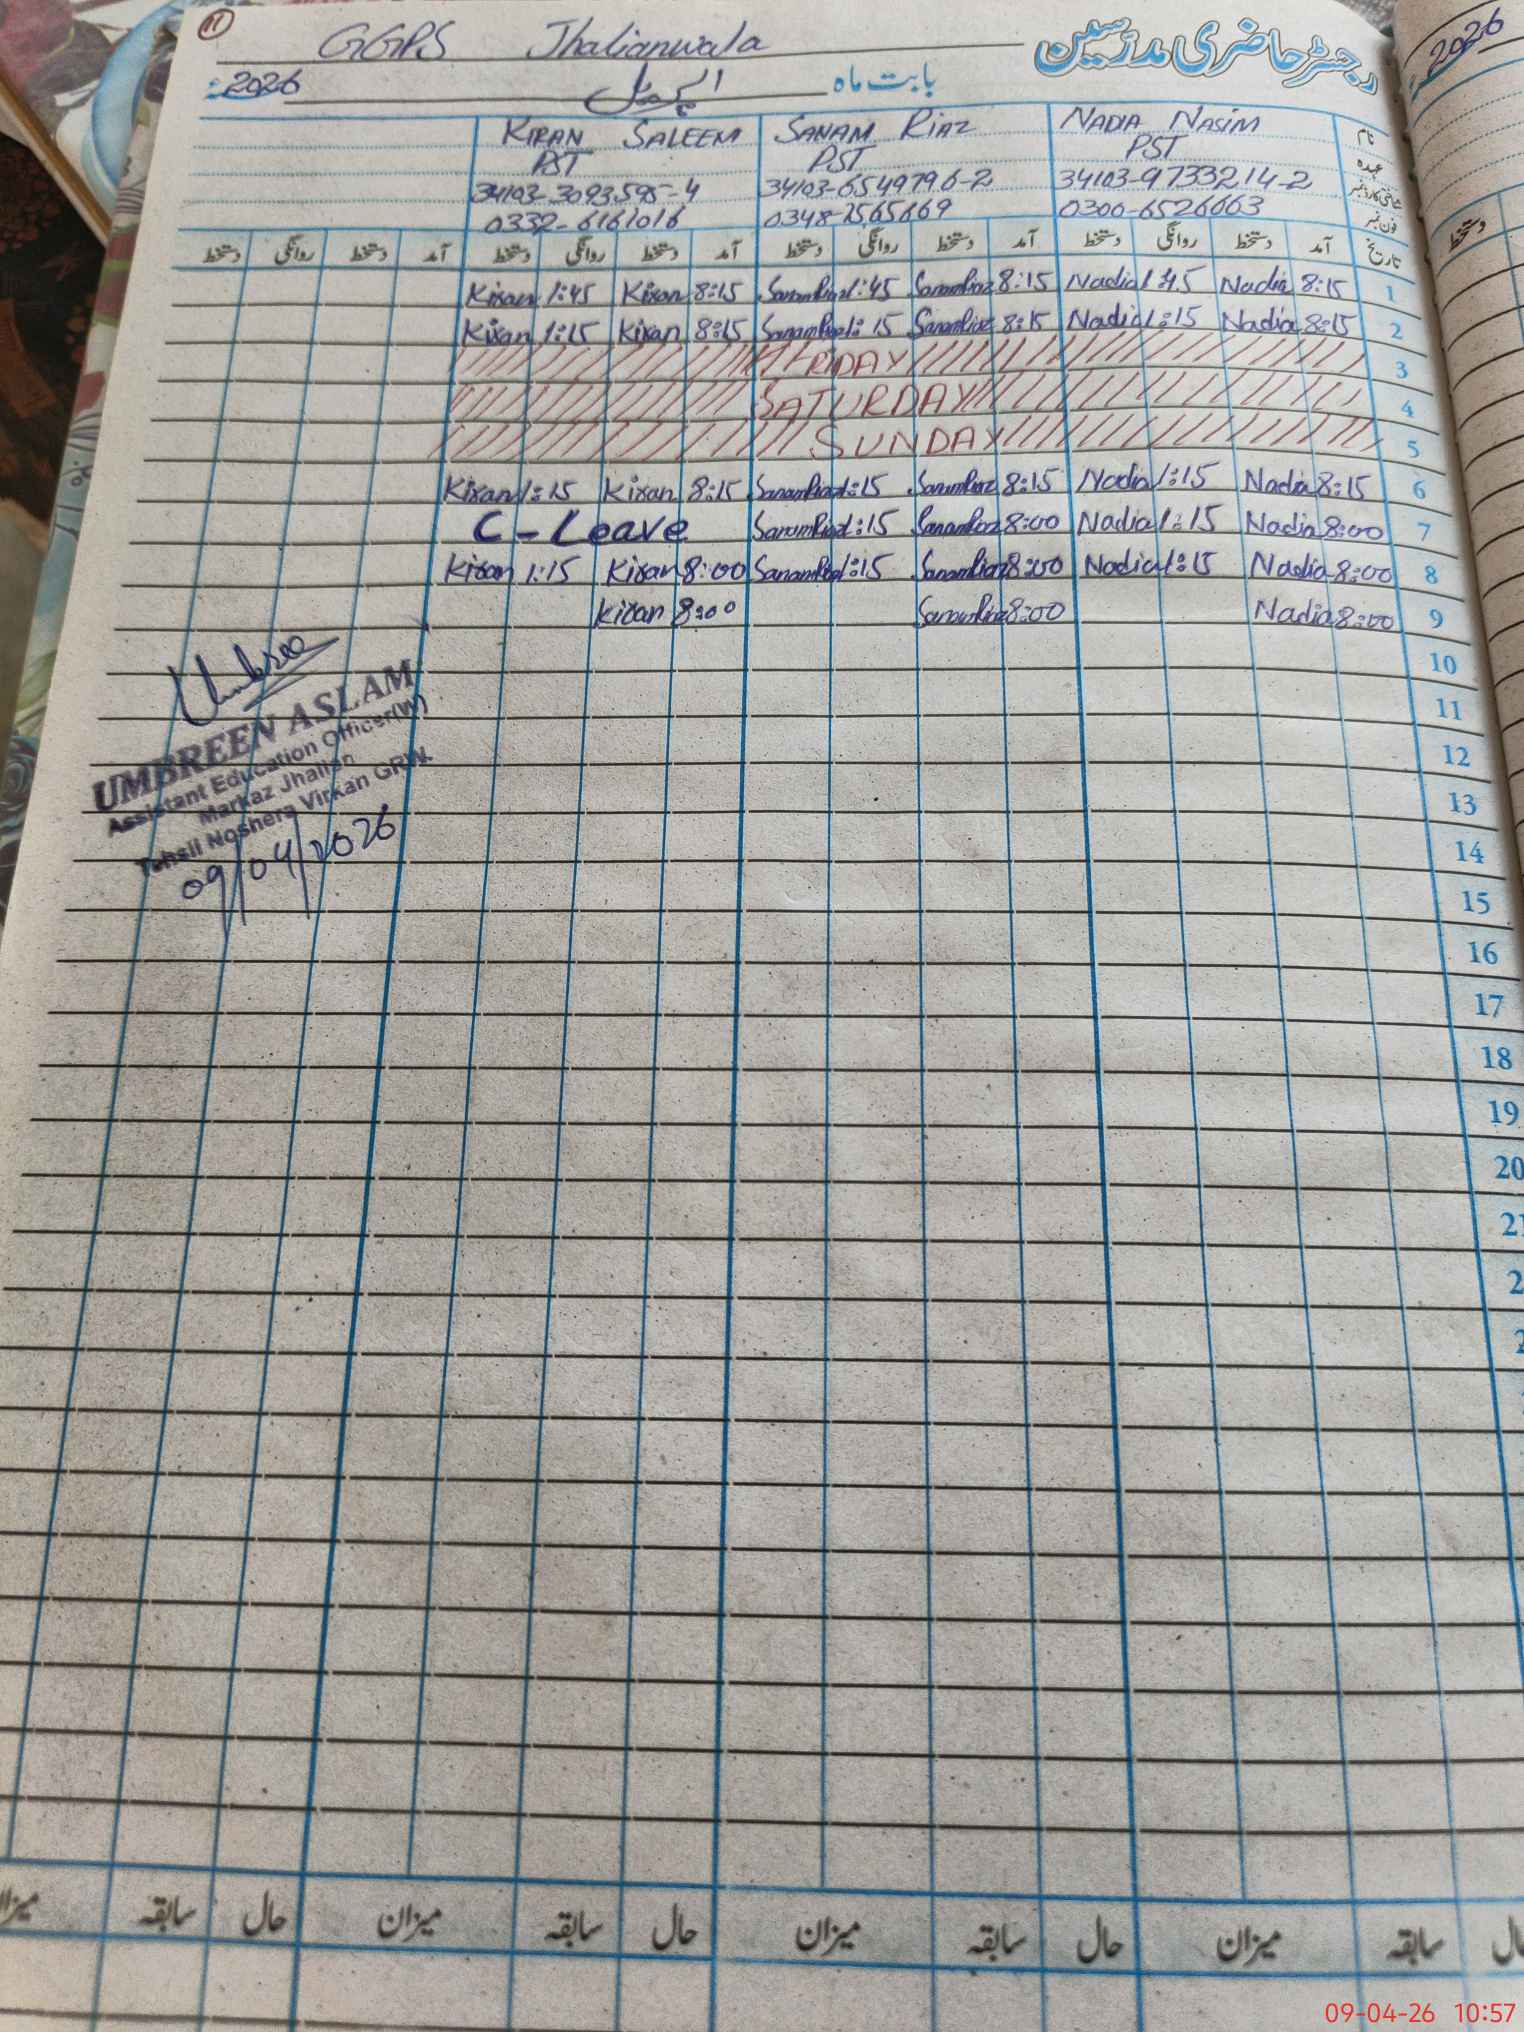 11
GGPS Jhalianwala
رجسٹر حاضری مدرسین
2026
بابت ماہ اپریل
2026
نام NADIA NASIM SANAM RIAZ KIRAN SALEEM
عہدہ PST PST PST
34103-9733214-2 34103-6549796-2 34103-3093595-4
فون نمبر 0300-6526663 0348-7565669 0332-6161016
تاریخ آمد دستخط روانگی دستخط آمد دستخط روانگی دستخط آمد دستخط روانگی دستخط آمد دستخط روانگی دستخط
دستخط
1 8:15 Nadia 1:45 Nadia 8:15 SanamRiaz 1:45 SanamRiaz 8:15 Kiran 1:45 Kiran
2 8:15 Nadia 1:15 Nadia 8:15 SanamRiaz 1:15 SanamRiaz 8:15 Kiran 1:15 Kiran
3 FRIDAY
4 SATURDAY
5 SUNDAY
6 8:15 Nadia 1:15 Nadia 8:15 SanamRiaz 1:15 SanamRiaz 8:15 Kiran 1:15 Kiran
7 8:00 Nadia 1:15 Nadia 8:00 SanamRiaz 1:15 SanamRiaz C-Leave
8 8:00 Nadia 1:15 Nadia 8:00 SanamRiaz 1:15 SanamRiaz 8:00 Kiran 1:15 Kiran
9 8:00 Nadia 8:00 SanamRiaz 8:00 Kiran
10
11
12
13
14
15
16
17
18
19
20
21
Umbreen
UMBREEN ASLAM
Assistant Education Officer(W)
Markaz Jhallan
Tehsil Noshera Virkan GRW.
09/04/2026
حال سابقہ میزان حال سابقہ میزان حال سابقہ میزان حال سابقہ میزان
09-04-26 10:57